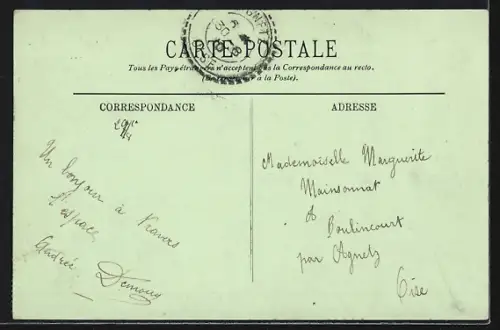 CARTE POSTALE
Tous les Pays étrangers n'acceptent pas la Correspondance au recto.
à la Poste).
CORRESPONDANCE
ADRESSE
Un bonjour à travers
l'espace
Andrée
Mademoiselle Marguerite
Mainsonnat
à Boulincourt
par Agnetz
Oise